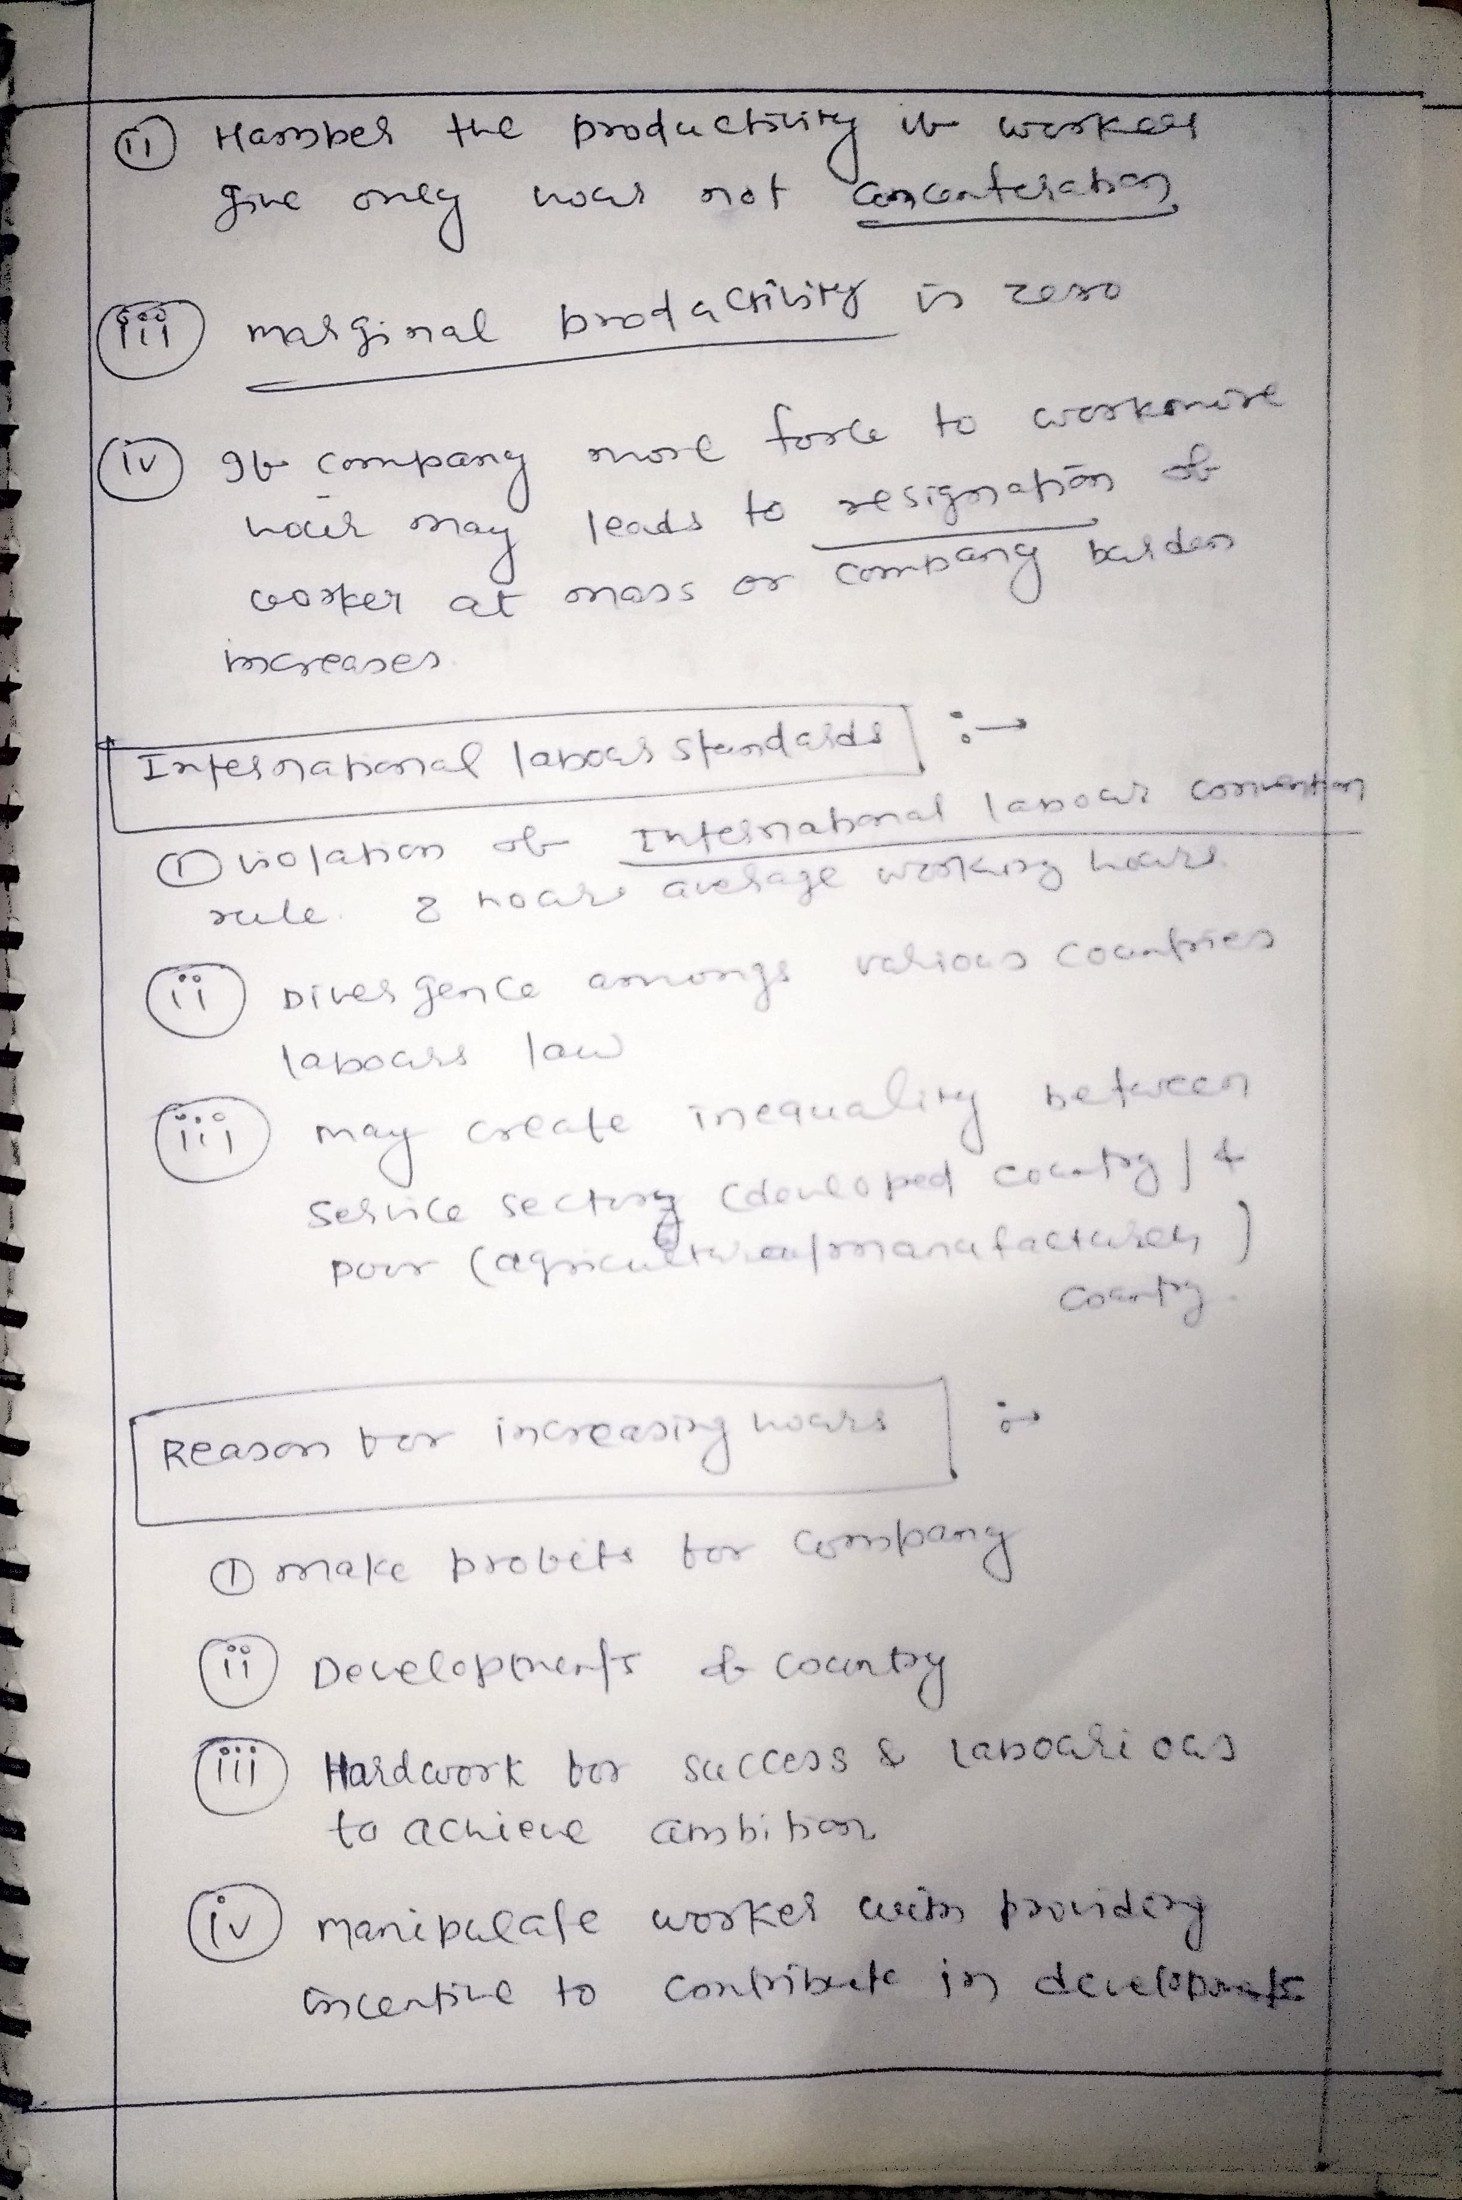 (ii) Hamper the productivity if workers
give only hour not concenteration
(iii) marginal productivity is zero
(iv) If company more force to workmore
hour may leads to resignation of
worker at mass or company burden
increases.
International labour standards :→
(i) violation of International labour convention
rule. 8 hours average working hours.
(ii) Divergence amongs various countries
labours law
(iii) may create inequality between
service sector (developed country) &
poor (agricultural/manufacturers)
country.
Reason for increasing hours :→
(i) make profits for company
(ii) Developments of country
(iii) Hardwork for success & labourious
to achieve ambition
(iv) manipulate worker with providing
incentive to contribute in developments.